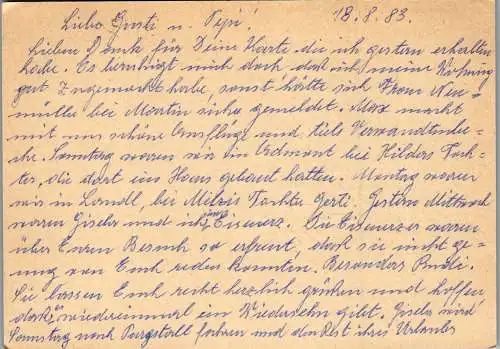 Liebe Gusti u. Pepi! 18.8.83.
Lieben Dank für Deine Karte die ich gestern erhalten
habe. Es beruhigt mich doch daß ich meine Wohnung
gut zugemacht habe, sonst hätte sich Frau Neu-
müller bei Martin sicher gemeldet. Max macht
mit uns schöne Ausflüge und viele Verwandtenbesu-
che. Sonntag waren wir in Admont bei Hilders Toch-
ter, die dort ein Haus gebaut hatten. Montag waren
wir in Landl, bei Mitzis Tochter Gerti. Gestern Mittwoch
waren Gisela und ich in Eisenerz. Die Eisenerzer waren
über Euren Besuch so erfreut, daß sie nicht ge-
nung von Euch reden konnten. Besonders Rudi.
Sie lassen Euch recht herzlich grüßen und hoffen
daß es wiedereinmal ein Wiedersehn gibt. Gisela wird
Samstag nach Purgstall fahren und den Rest ihres Urlaubes